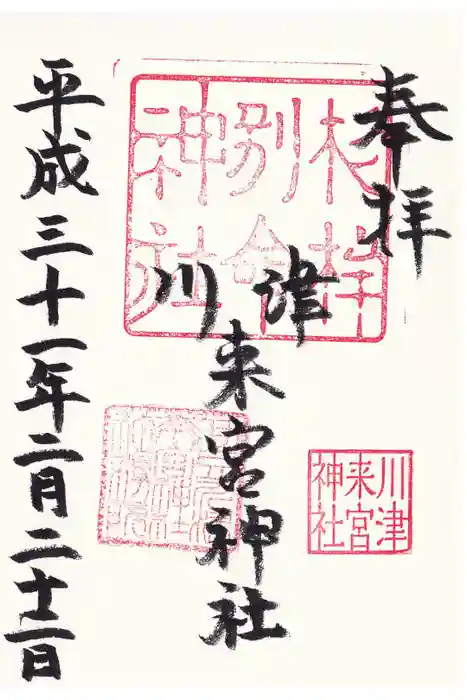 奉拝
杉桙
別命
神社
川津
来宮神社
川津
来宮
神社
平成三十一年二月二十二日